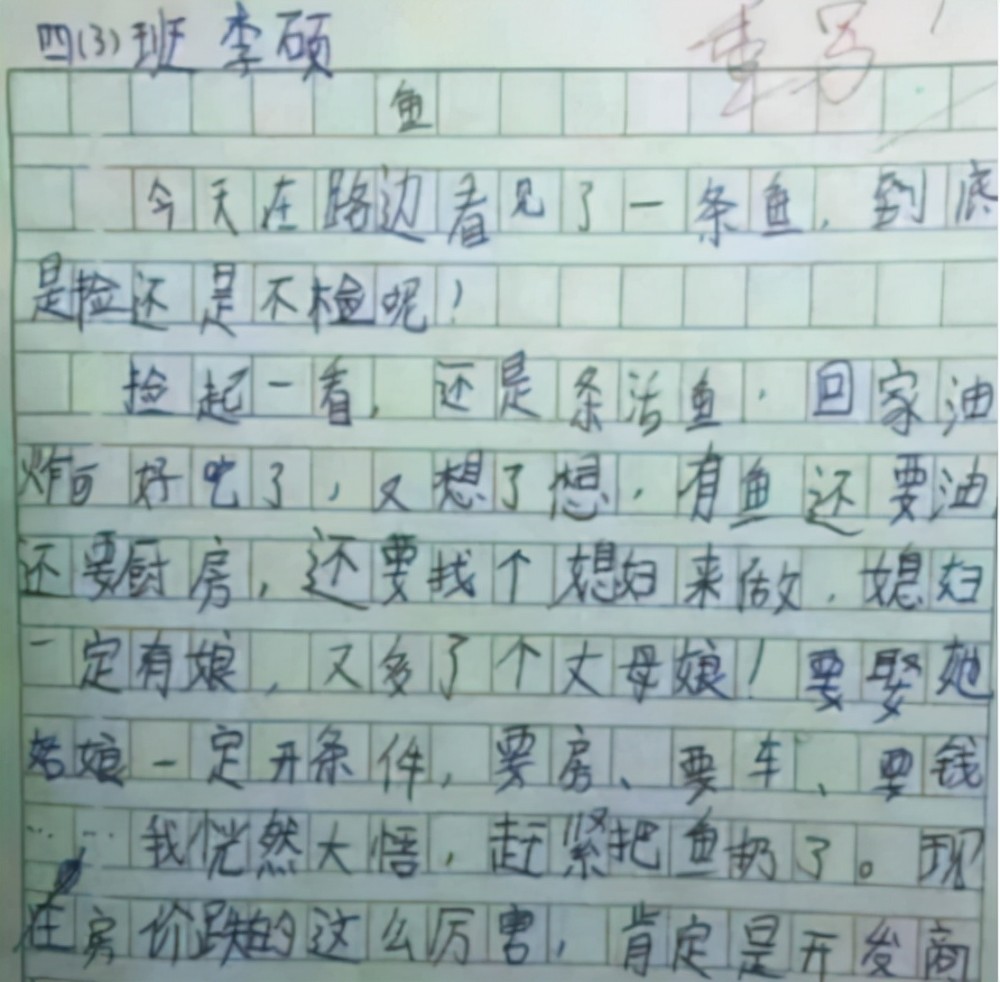 四(3)班 李硕
重写
鱼
今天在路边看见了一条鱼,到底
是捡还是不检呢!
捡起一看,还是条活鱼,回家油
炸可好吃了,又想了想,有鱼还要油
还要厨房,还要找个媳妇来做,媳妇
一定有娘,又多了个丈母娘!要娶她
姑娘一定开条件,要房、要车、要钱
……我恍然大悟,赶紧把鱼扔了。现
在房价跌的这么厉害,肯定是开发商